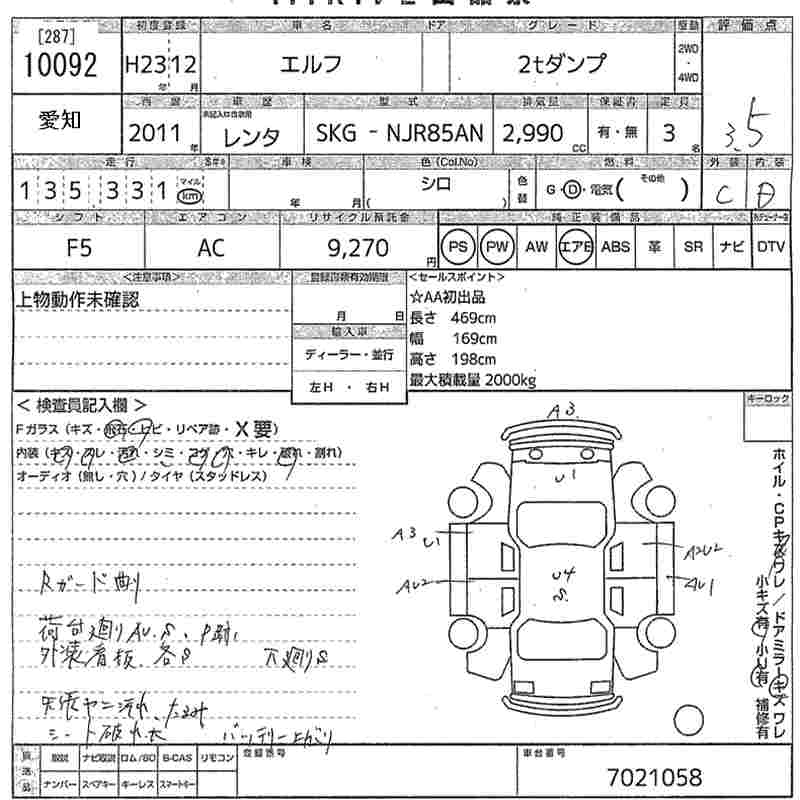 [287]
10092
初度登録
車名
ドア
グレード
駆動
評価点
H23 12
年 月
エルフ
2tダンプ
2WD
・
4WD
3.5
愛知
西暦
車歴
型式
排気量
保証書
定員
2011 年
レンタ
SKG - NJR85AN
2,990 CC
有・無
3 名
走行
車検
色(Col.No)
燃料
外装
内装
135,331
マイル
km
年 月
シロ
( )
色替
G・D・電気( その他 )
C
D
シフト
エアコン
リサイクル預託金
純正装備品
F5
AC
9,270 円
PS PW AW エアB ABS 革 SR ナビ DTV
<注意事項>
上物動作未確認
登録書類有効期限
月 日
輸入車
ディーラー・並行
左H ・ 右H
<セールスポイント>
☆AA初出品
長さ 469cm
幅 169cm
高さ 198cm
最大積載量 2000kg
キーロック
< 検査員記入欄 >
Fガラス(キズ・飛石・ヒビ・リペア跡・X要)
内装(キズ・スレ・汚れ・シミ・コゲ・穴・キレ・破れ・割れ)
オーディオ(無し・穴)/タイヤ(スタッドレス)
Rガード曲り
荷台廻りAU.S、P跡、
外装看板、各S 下廻りS
天張ヤニ汚れ、たるみ
シート破れ大 バッテリー上がり
A3
U1
A3
U1
AU2
U4
S
A2U2
AU1
ホイル・CPキズワレ/ドアミラーキズワレ
小キズ有 小U有 補修有
登録番号
車台番号
取説 ナビ取説 ロム/SD B-CAS リモコン
ナンバー スペアキー キーレス スマートキー
7021058